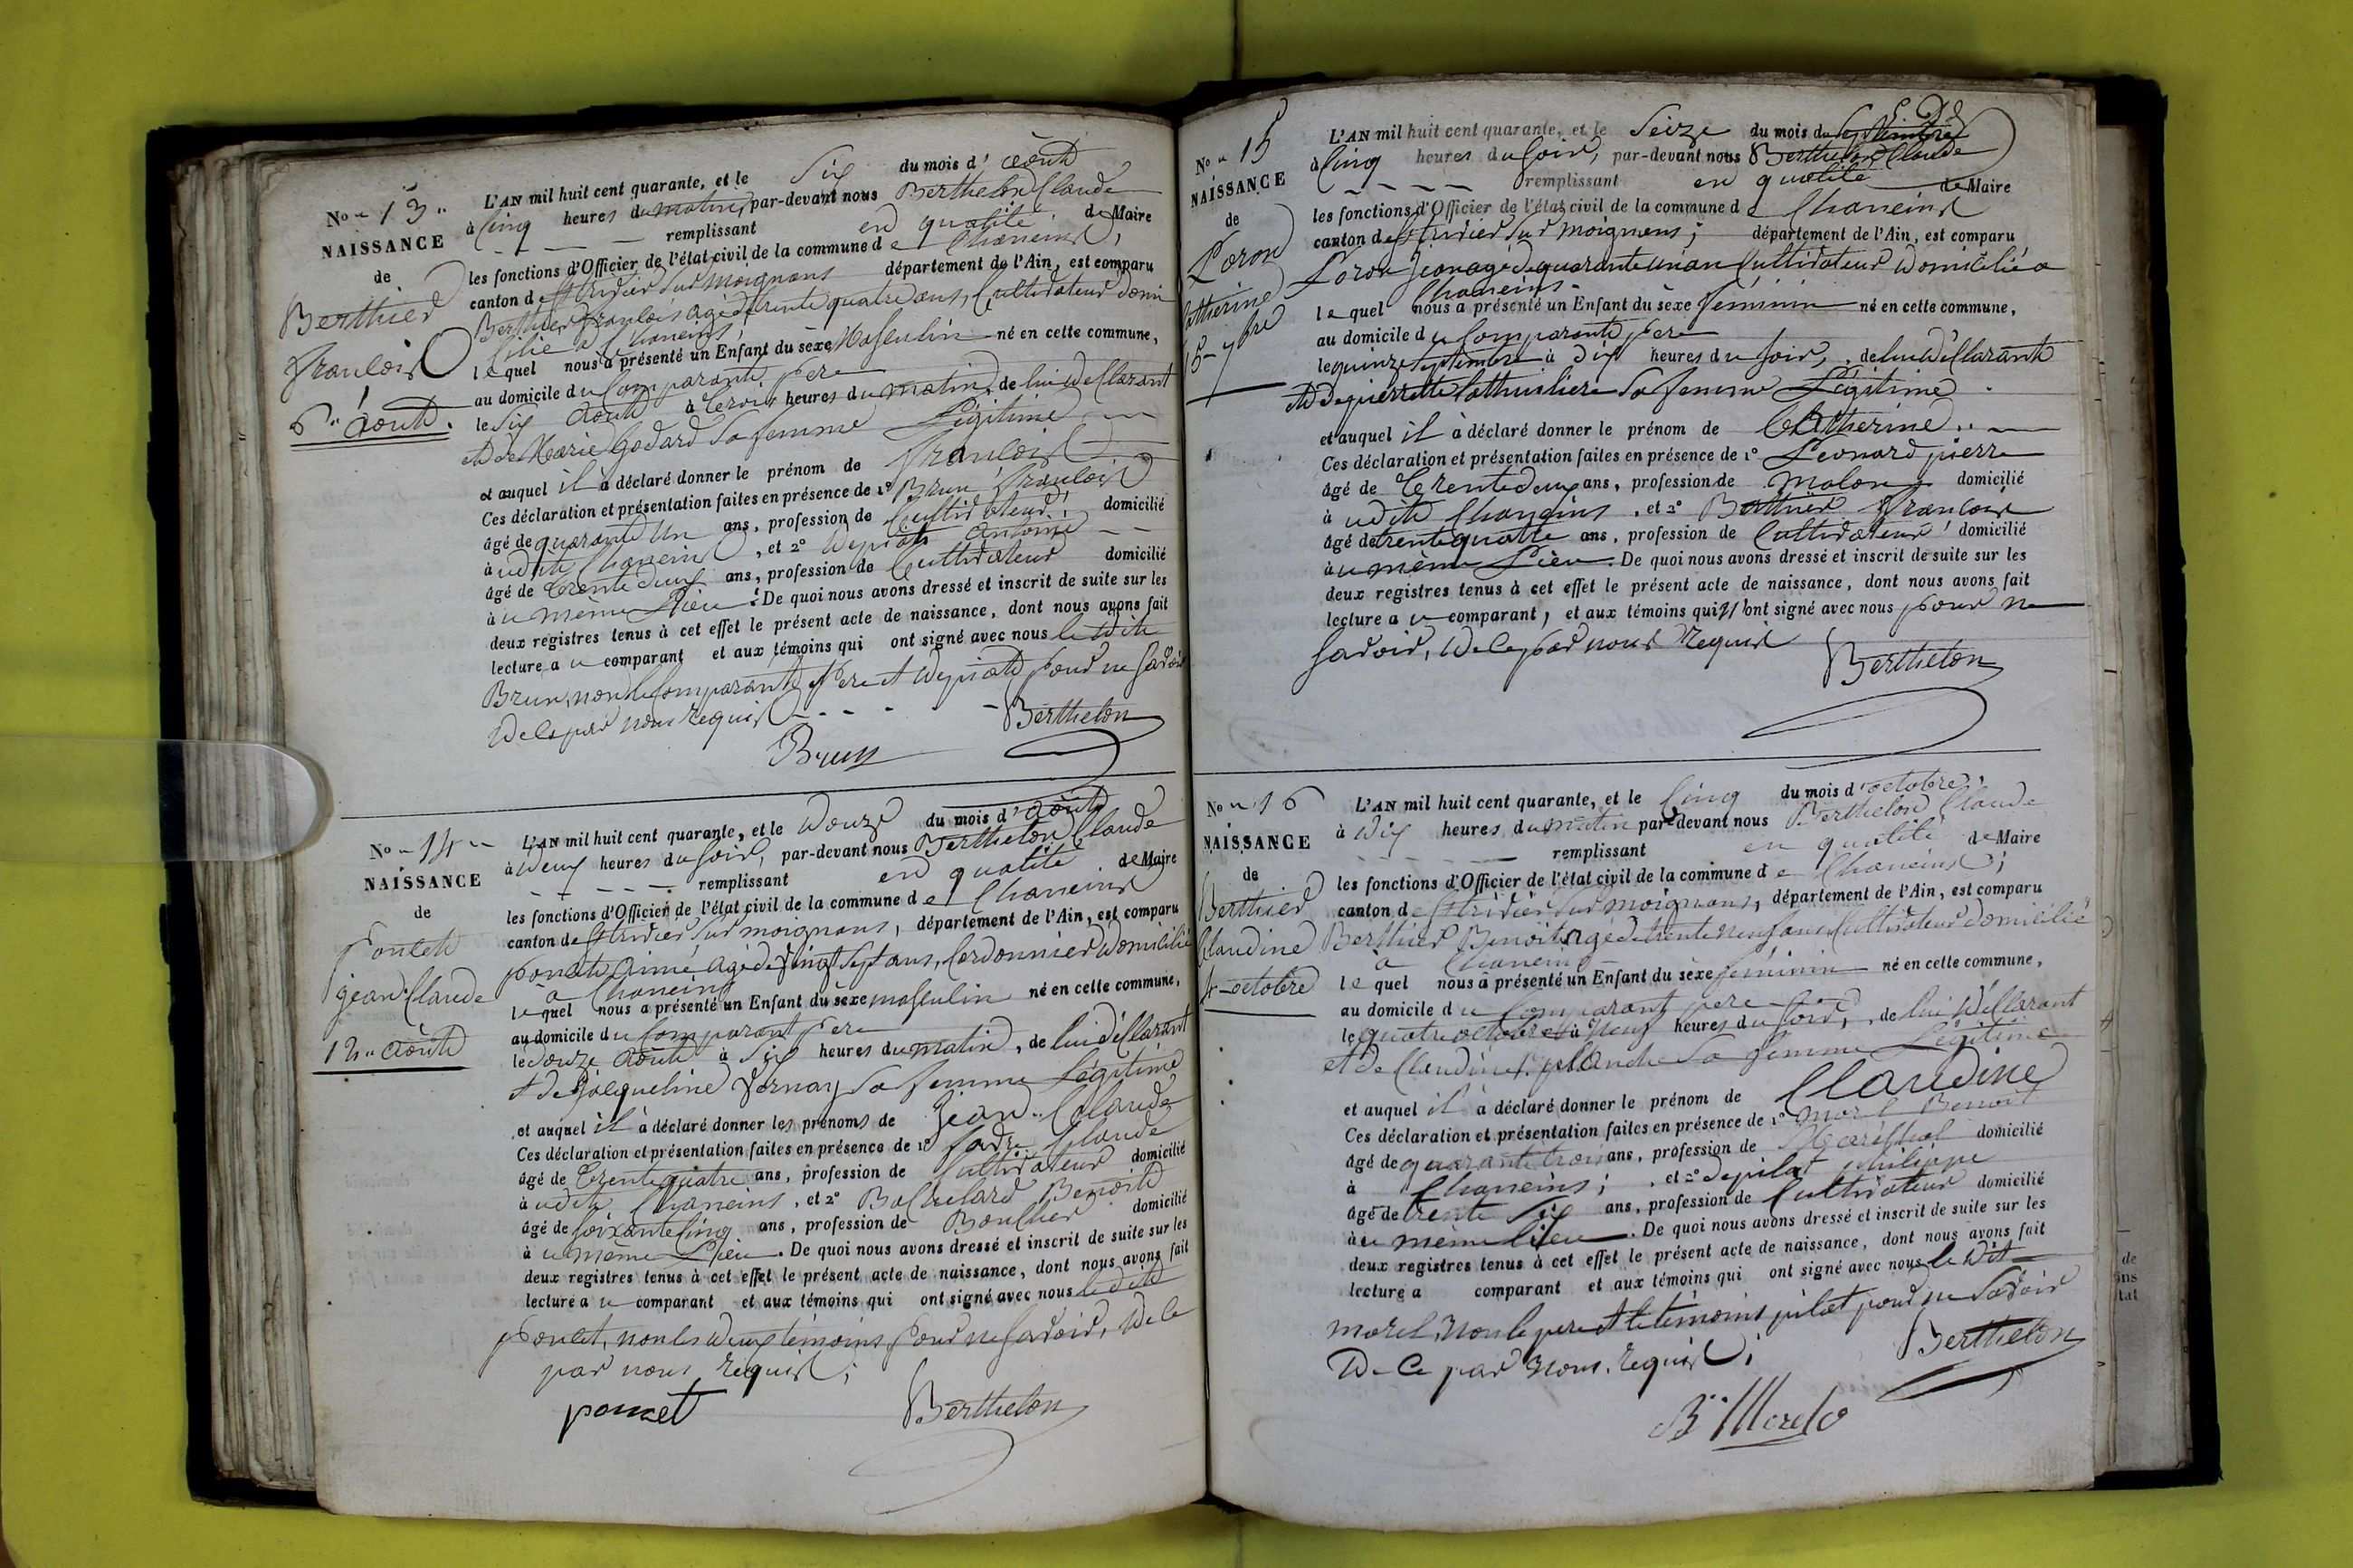 No 13
NAISSANCE
de
Berthier
François
6 août.
L'AN mil huit cent quarante, et le Six du mois d'août
à Cinq heures du matin, par-devant nous Berthelon Claude
remplissant en qualité de Maire
les fonctions d'Officier de l'état civil de la commune de Chaneins,
canton de St trivier Sur moignans département de l'Ain, est comparu
Berthier François agé de trente quatre ans, Cultivateur domi
cilié à Chaneins,
le quel nous a présenté un Enfant du sexe Masculin né en cette commune,
au domicile du Comparant père
le Six août à trois heures du matin, de lui déclarant
et de Marie Godard Sa femme Légitime
et auquel il a déclaré donner le prénom de François
Ces déclaration et présentation faites en présence de 1º Brun François
âgé de quarante Un ans, profession de Cultivateur domicilié
à udit Chaneins, et 2º Depiat antoine
âgé de trente deux ans, profession de Cultivateur domicilié
à u même Lieu. De quoi nous avons dressé et inscrit de suite sur les
deux registres tenus à cet effet le présent acte de naissance, dont nous avons fait
lecture a u comparant et aux témoins qui ont signé avec nous le dit
Brun, non le Comparant père et Depiat pour ne Savoir
de ce par nous requis
Berthelon
Brun
No 14
NAISSANCE
de
Poncet
jean Claude
12 août
L'AN mil huit cent quarante, et le Douze du mois d'août
à Deux heures du soir, par-devant nous Berthelon Claude
remplissant en qualité de Maire
les fonctions d'Officier de l'état civil de la commune de Chaneins
canton de St trivier Sur moignans, département de l'Ain, est comparu
poncet aimé agé de vingt Sept ans, Cordonnier domicilié
a Chaneins
le quel nous a présenté un Enfant du sexe masculin né en cette commune,
au domicile du Comparant père
le douze août à Six heures du matin, de lui déclarant
et de jacqueline Vernay Sa femme Légitime
et auquel il a déclaré donner les prénoms de Jean Claude
Ces déclaration et présentation faites en présence de 1º Claude
âgé de trente quatre ans, profession de Cultivateur domicilié
à udit Chaneins, et 2º Bachelard Benoit
âgé de soixante Cinq ans, profession de Boucher domicilié
à u même Lieu. De quoi nous avons dressé et inscrit de suite sur les
deux registres tenus à cet effet le présent acte de naissance, dont nous avons fait
lecture a u comparant et aux témoins qui ont signé avec nous le dit
poncet, non les deux témoins pour ne Savoir, de ce
par nous requis;
poncet Berthelon
No 15
NAISSANCE
de
Loron
Catherine
15 7bre
L'AN mil huit cent quarante, et le Seize du mois de Septembre
à Cinq heures du soir, par-devant nous Berthelon Claude
remplissant en qualité de Maire
les fonctions d'Officier de l'état civil de la commune de Chaneins
canton de St trivier Sur moignans; département de l'Ain, est comparu
Loron Jean agé de quarante un an Cultivateur domicilié a
Chaneins
le quel nous a présenté un Enfant du sexe féminin né en cette commune,
au domicile du Comparant père
le quinze Septembre à Dix heures du soir, de lui déclarant
et de pierrette Lathuiliere Sa femme Légitime
et auquel il a déclaré donner le prénom de Catherine
Ces déclaration et présentation faites en présence de 1º Leonard pierre
âgé de trente deux ans, profession de Malon domicilié
à udit Chaneins, et 2º Berthier François
âgé de trente quatre ans, profession de Cultivateur domicilié
à u même Lieu. De quoi nous avons dressé et inscrit de suite sur les
deux registres tenus à cet effet le présent acte de naissance, dont nous avons fait
lecture a u comparant, et aux témoins qui n'ont signé avec nous pour ne
Savoir, de ce par nous requis
Berthelon
No 16
NAISSANCE
de
Berthier
Claudine
4 octobre
L'AN mil huit cent quarante, et le Cinq du mois d'octobre
à Dix heures du matin par-devant nous Berthelon Claude
remplissant en qualité de Maire
les fonctions d'Officier de l'état civil de la commune de Chaneins;
canton de St trivier Sur moignans, département de l'Ain, est comparu
Berthier Benoit agé de trente neuf ans Cultivateur domicilié
à Chaneins
le quel nous a présenté un Enfant du sexe féminin né en cette commune,
au domicile du Comparant père
le quatre octobre à neuf heures du soir, de lui déclarant
et de Claudine Sa femme Légitime
et auquel il a déclaré donner le prénom de Claudine
Ces déclaration et présentation faites en présence de 1º Morel Benoit
âgé de quarante trois ans, profession de Maréchal domicilié
à Chaneins; et 2º Depilat philippe
âgé de trente Six ans, profession de Cultivateur domicilié
à u même lieu. De quoi nous avons dressé et inscrit de suite sur les
deux registres tenus à cet effet le présent acte de naissance, dont nous avons fait
lecture a comparant et aux témoins qui ont signé avec nous le dit
morel, non le pere et le témoins pilat pour ne Savoir
De Ce par nous requis;
Berthelon
B Morel